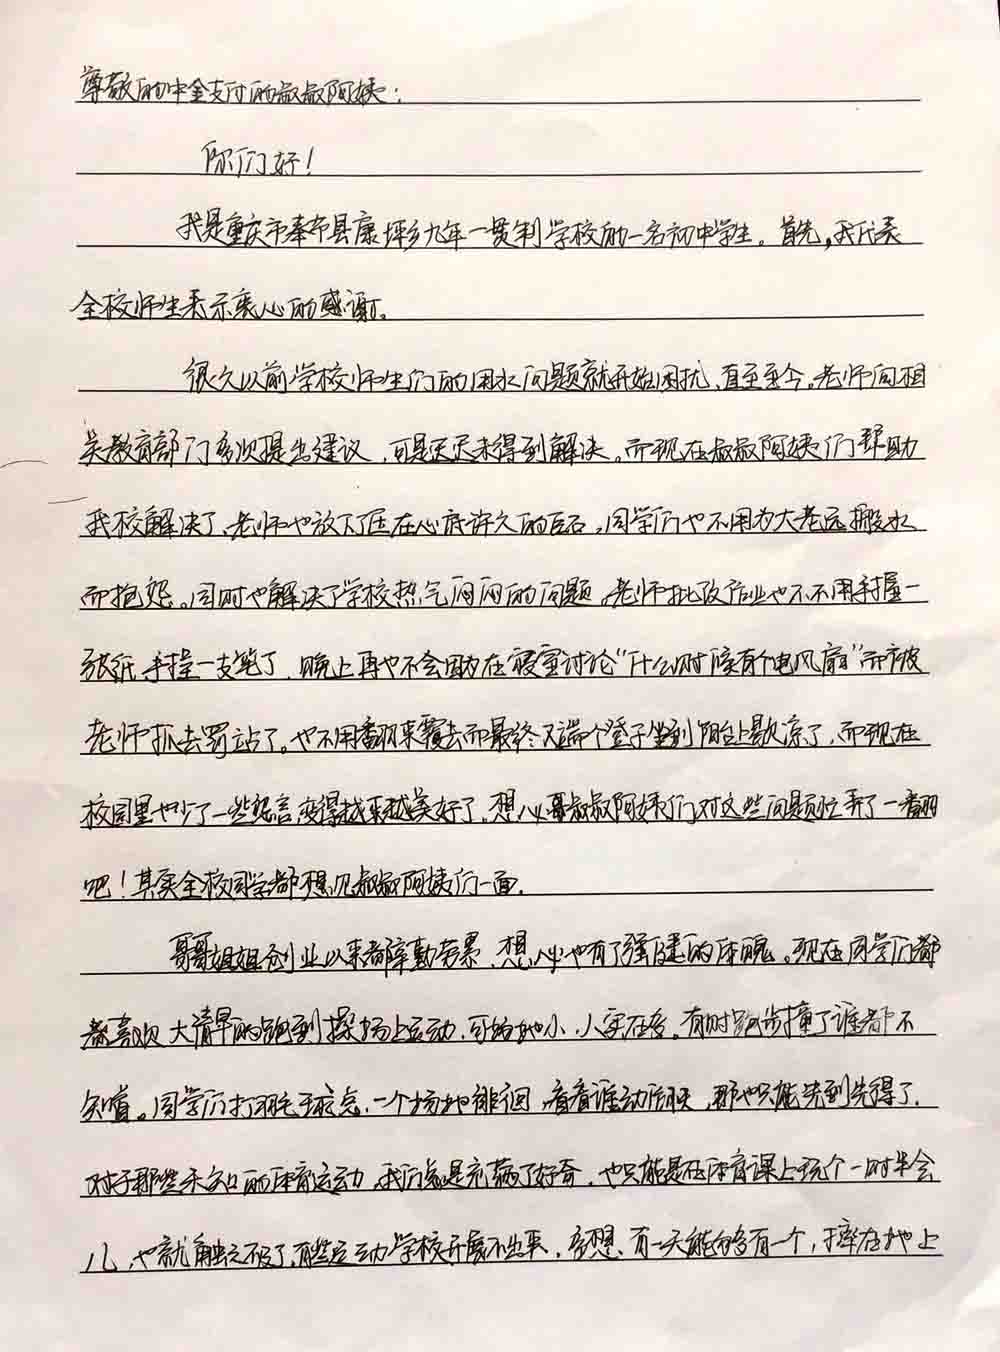 尊敬的中金支付的叔叔阿姨：
你们好！
我是重庆市奉节县康坪乡九年一贯制学校的一名初中学生。首先，我代表
全校师生表示衷心的感谢。
很久以前学校师生们的用水问题就开始困扰、直至至今。老师向相
关教育部门多次提出建议，可是迟迟未得到解决。而现在叔叔阿姨们帮助
我校解决了、老师也放下了压在心底许久的巨石，同学们也不用为大老远搬水
而抱怨。同时也解决了学校热气闷闷的问题。老师批改作业也不不用手握一
张纸手握一支笔了，晚上再也不会因为在寝室讨论“什么时候有个电风扇”而被
老师抓去罚站了。也不用翻来覆去而最终又端个凳子坐到阳台上歇凉了，而现在
校园里也少了一些怨言变得越来越美好了，想必叔叔阿姨们对这些问题忙弄了一番
吧！其实全校同学都想见叔叔阿姨们一面。
哥哥姐姐创业以来都辛勤劳累，想必也有了强健的体魄。现在同学们都
都喜欢大清早的跑到操场上运动，可场地小、人实在多。有时跑步撞了谁都不
知道。同学们打羽毛球总一个场地徘徊，看看谁动作快，那也只能先到先得了，
对于那些未知的体育运动，我们总是充满了好奇，也只能是在体育课上玩个一时半会
儿，也就触之不及了，有些运动学校开展不出来，多想、有一天能够有一个，摔在地上